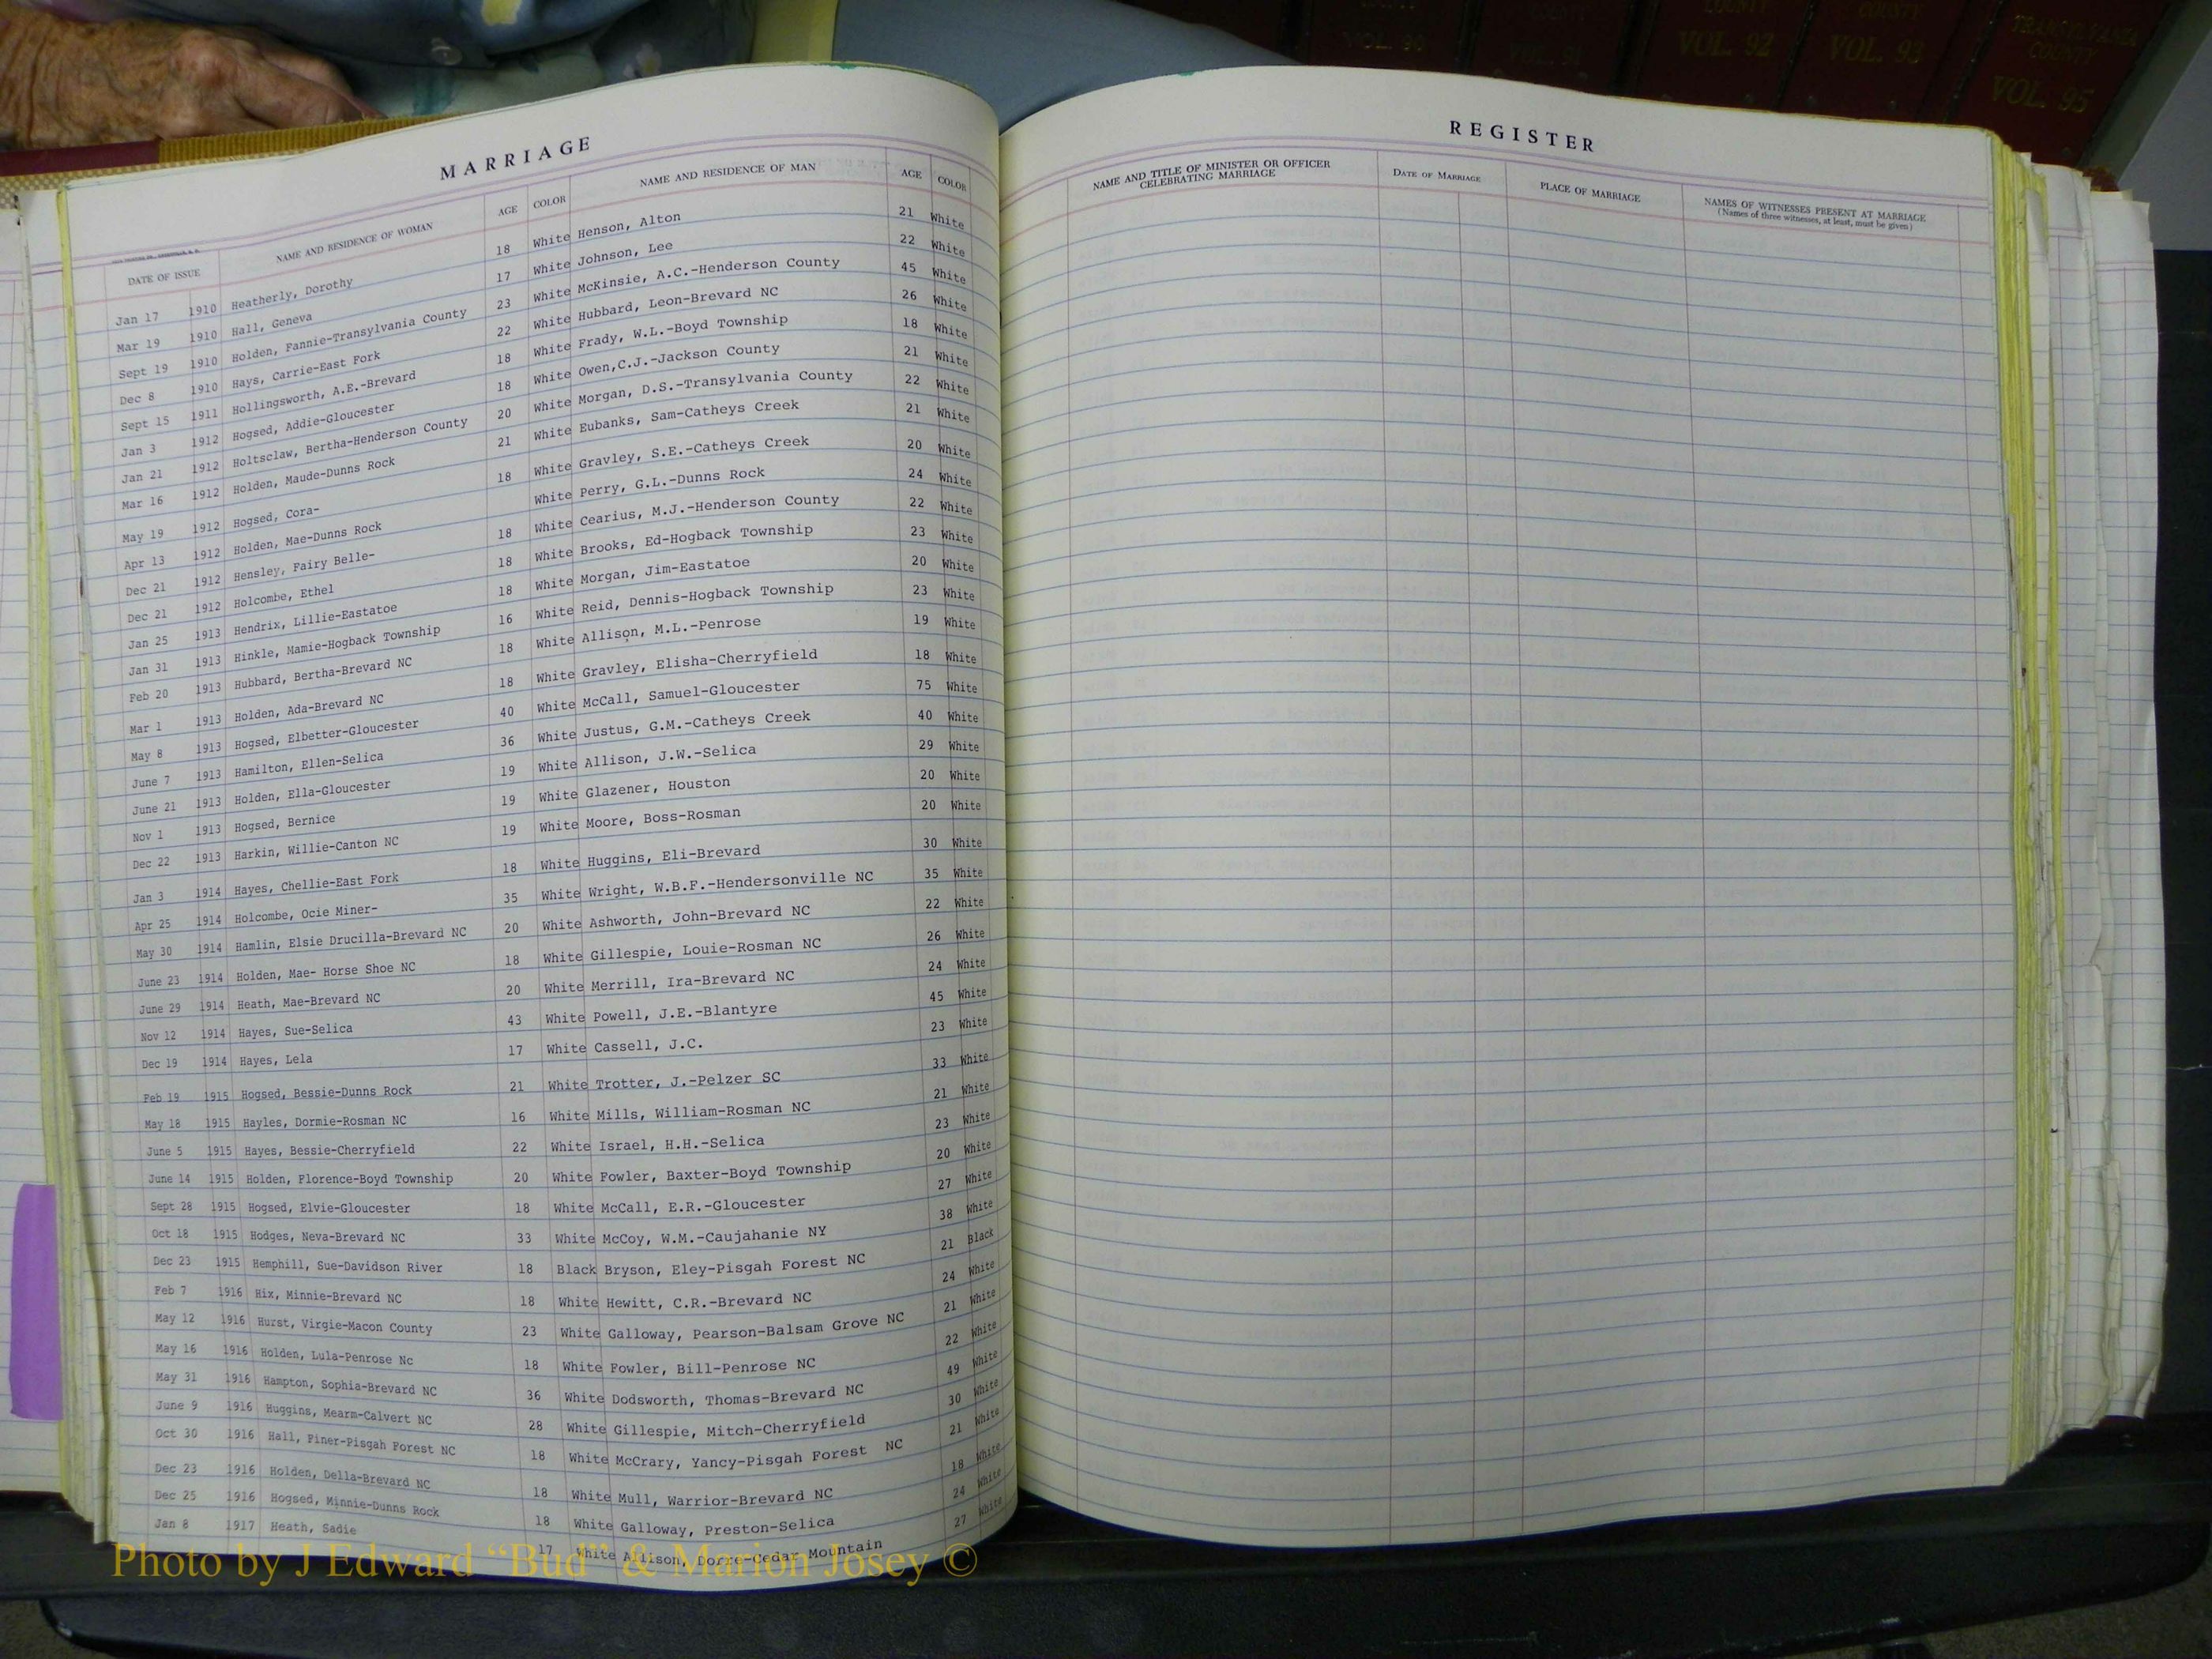 COUNTY VOL. 90
COUNTY VOL. 91
COUNTY VOL. 92
COUNTY VOL. 93
TRANSYLVANIA COUNTY VOL. 95
MARRIAGE
DATE OF ISSUE NAME AND RESIDENCE OF WOMAN AGE COLOR NAME AND RESIDENCE OF MAN AGE COLOR
Jan 17 1910 Heatherly, Dorothy 18 White Henson, Alton 21 White
Mar 19 1910 Hall, Geneva 17 White Johnson, Lee 22 White
Sept 19 1910 Holden, Fannie-Transylvania County 23 White McKinsie, A.C.-Henderson County 45 White
Dec 8 1910 Hays, Carrie-East Fork 22 White Hubbard, Leon-Brevard NC 26 White
Sept 15 1911 Hollingsworth, A.E.-Brevard 18 White Frady, W.L.-Boyd Township 18 White
Jan 3 1912 Hogsed, Addie-Gloucester 18 White Owen,C.J.-Jackson County 21 White
Jan 21 1912 Holtsclaw, Bertha-Henderson County 20 White Morgan, D.S.-Transylvania County 22 White
Mar 16 1912 Holden, Maude-Dunns Rock 21 White Eubanks, Sam-Catheys Creek 21 White
May 19 1912 Hogsed, Cora- 18 White Gravley, S.E.-Catheys Creek 20 White
Apr 13 1912 Holden, Mae-Dunns Rock White Perry, G.L.-Dunns Rock 24 White
Dec 21 1912 Hensley, Fairy Belle- 18 White Cearius, M.J.-Henderson County 22 White
Dec 21 1912 Holcombe, Ethel 18 White Brooks, Ed-Hogback Township 23 White
Jan 25 1913 Hendrix, Lillie-Eastatoe 18 White Morgan, Jim-Eastatoe 20 White
Jan 31 1913 Hinkle, Mamie-Hogback Township 16 White Reid, Dennis-Hogback Township 23 White
Feb 20 1913 Hubbard, Bertha-Brevard NC 18 White Allison, M.L.-Penrose 19 White
Mar 1 1913 Holden, Ada-Brevard NC 18 White Gravley, Elisha-Cherryfield 18 White
May 8 1913 Hogsed, Elbetter-Gloucester 40 White McCall, Samuel-Gloucester 75 White
June 7 1913 Hamilton, Ellen-Selica 36 White Justus, G.M.-Catheys Creek 40 White
June 21 1913 Holden, Ella-Gloucester 19 White Allison, J.W.-Selica 29 White
Nov 1 1913 Hogsed, Bernice 19 White Glazener, Houston 20 White
Dec 22 1913 Harkin, Willie-Canton NC 19 White Moore, Boss-Rosman 20 White
Jan 3 1914 Hayes, Chellie-East Fork 18 White Huggins, Eli-Brevard 30 White
Apr 25 1914 Holcombe, Ocie Miner- 35 White Wright, W.B.F.-Hendersonville NC 35 White
May 30 1914 Hamlin, Elsie Drucilla-Brevard NC 20 White Ashworth, John-Brevard NC 22 White
June 23 1914 Holden, Mae- Horse Shoe NC 18 White Gillespie, Louie-Rosman NC 26 White
June 29 1914 Heath, Mae-Brevard NC 20 White Merrill, Ira-Brevard NC 24 White
Nov 12 1914 Hayes, Sue-Selica 43 White Powell, J.E.-Blantyre 45 White
Dec 19 1914 Hayes, Lela 17 White Cassell, J.C. 23 White
Feb 19 1915 Hogsed, Bessie-Dunns Rock 21 White Trotter, J.-Pelzer SC 33 White
May 18 1915 Hayles, Dormie-Rosman NC 16 White Mills, William-Rosman NC 21 White
June 5 1915 Hayes, Bessie-Cherryfield 22 White Israel, H.H.-Selica 23 White
June 14 1915 Holden, Florence-Boyd Township 20 White Fowler, Baxter-Boyd Township 20 White
Sept 28 1915 Hogsed, Elvie-Gloucester 18 White McCall, E.R.-Gloucester 27 White
Oct 18 1915 Hodges, Neva-Brevard NC 33 White McCoy, W.M.-Caujahanie NY 38 White
Dec 23 1915 Hemphill, Sue-Davidson River 18 Black Bryson, Eley-Pisgah Forest NC 21 Black
Feb 7 1916 Hix, Minnie-Brevard NC 18 White Hewitt, C.R.-Brevard NC 24 White
May 12 1916 Hurst, Virgie-Macon County 23 White Galloway, Pearson-Balsam Grove NC 21 White
May 16 1916 Holden, Lula-Penrose Nc 18 White Fowler, Bill-Penrose NC 22 White
May 31 1916 Hampton, Sophia-Brevard NC 36 White Dodsworth, Thomas-Brevard NC 49 White
June 9 1916 Huggins, Mearm-Calvert NC 28 White Gillespie, Mitch-Cherryfield 30 White
Oct 30 1916 Hall, Finer-Pisgah Forest NC 18 White McCrary, Yancy-Pisgah Forest NC 21 White
Dec 23 1916 Holden, Della-Brevard NC 18 White Mull, Warrior-Brevard NC 18 White
Dec 25 1916 Hogsed, Minnie-Dunns Rock 18 White Galloway, Preston-Selica 24 White
Jan 8 1917 Heath, Sadie 17 White Allison, Dorre-Cedar Mountain 27 White
REGISTER
NAME AND TITLE OF MINISTER OR OFFICER CELEBRATING MARRIAGE DATE OF MARRIAGE PLACE OF MARRIAGE NAMES OF WITNESSES PRESENT AT MARRIAGE
(Names of three witnesses, at least, must be given)
Photo by J Edward “Bud” & Marion Josey ©